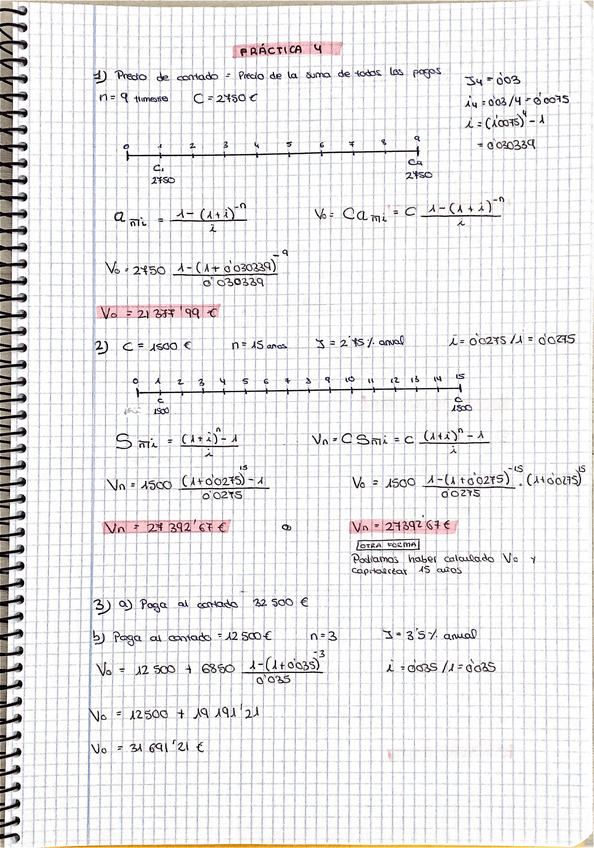 PRÁCTICA 4
1) Precio de contado = Precio de la suma de todos los pagos
n = 9 trimestre C = 2750 €
J4 = 0'03
i4 = 0'03/4 = 0'0075
i = (1'0075)^4 - 1
= 0'030339
0 1 2 3 4 5 6 7 8 9
C1 C9
2750 2750
a n̅|i = 1-(1+i)^-n / i
V0 = C a n̅|i = C 1-(1+i)^-n / i
V0 = 2750 1-(1+0'030339)^-9 / 0'030339
V0 = 21 377'99 €
2) C = 1500 € n = 15 años J = 2'75% anual i = 0'0275/1 = 0'0275
0 1 2 3 4 5 6 7 8 9 10 11 12 13 14 15
C C
1500 1500
S n̅|i = (1+i)^n - 1 / i
Vn = C S n̅|i = C (1+i)^n - 1 / i
Vn = 1500 (1+0'0275)^15 - 1 / 0'0275
V0 = 1500 1-(1+0'0275)^-15 / 0'0275 · (1+0'0275)^15
Vn = 27 392'67 € o Vn = 27392'67 €
OTRA FORMA
Podíamos haber calculado V0 y
capitalizar 15 años
3) a) Paga al contado 32 500 €
b) Paga al contado = 12 500 € n = 3 J = 3'5% anual
V0 = 12 500 + 6850 1-(1+0'035)^-3 / 0'035
i = 0'035/1 = 0'035
V0 = 12500 + 19 191'21
V0 = 31 691'21 €